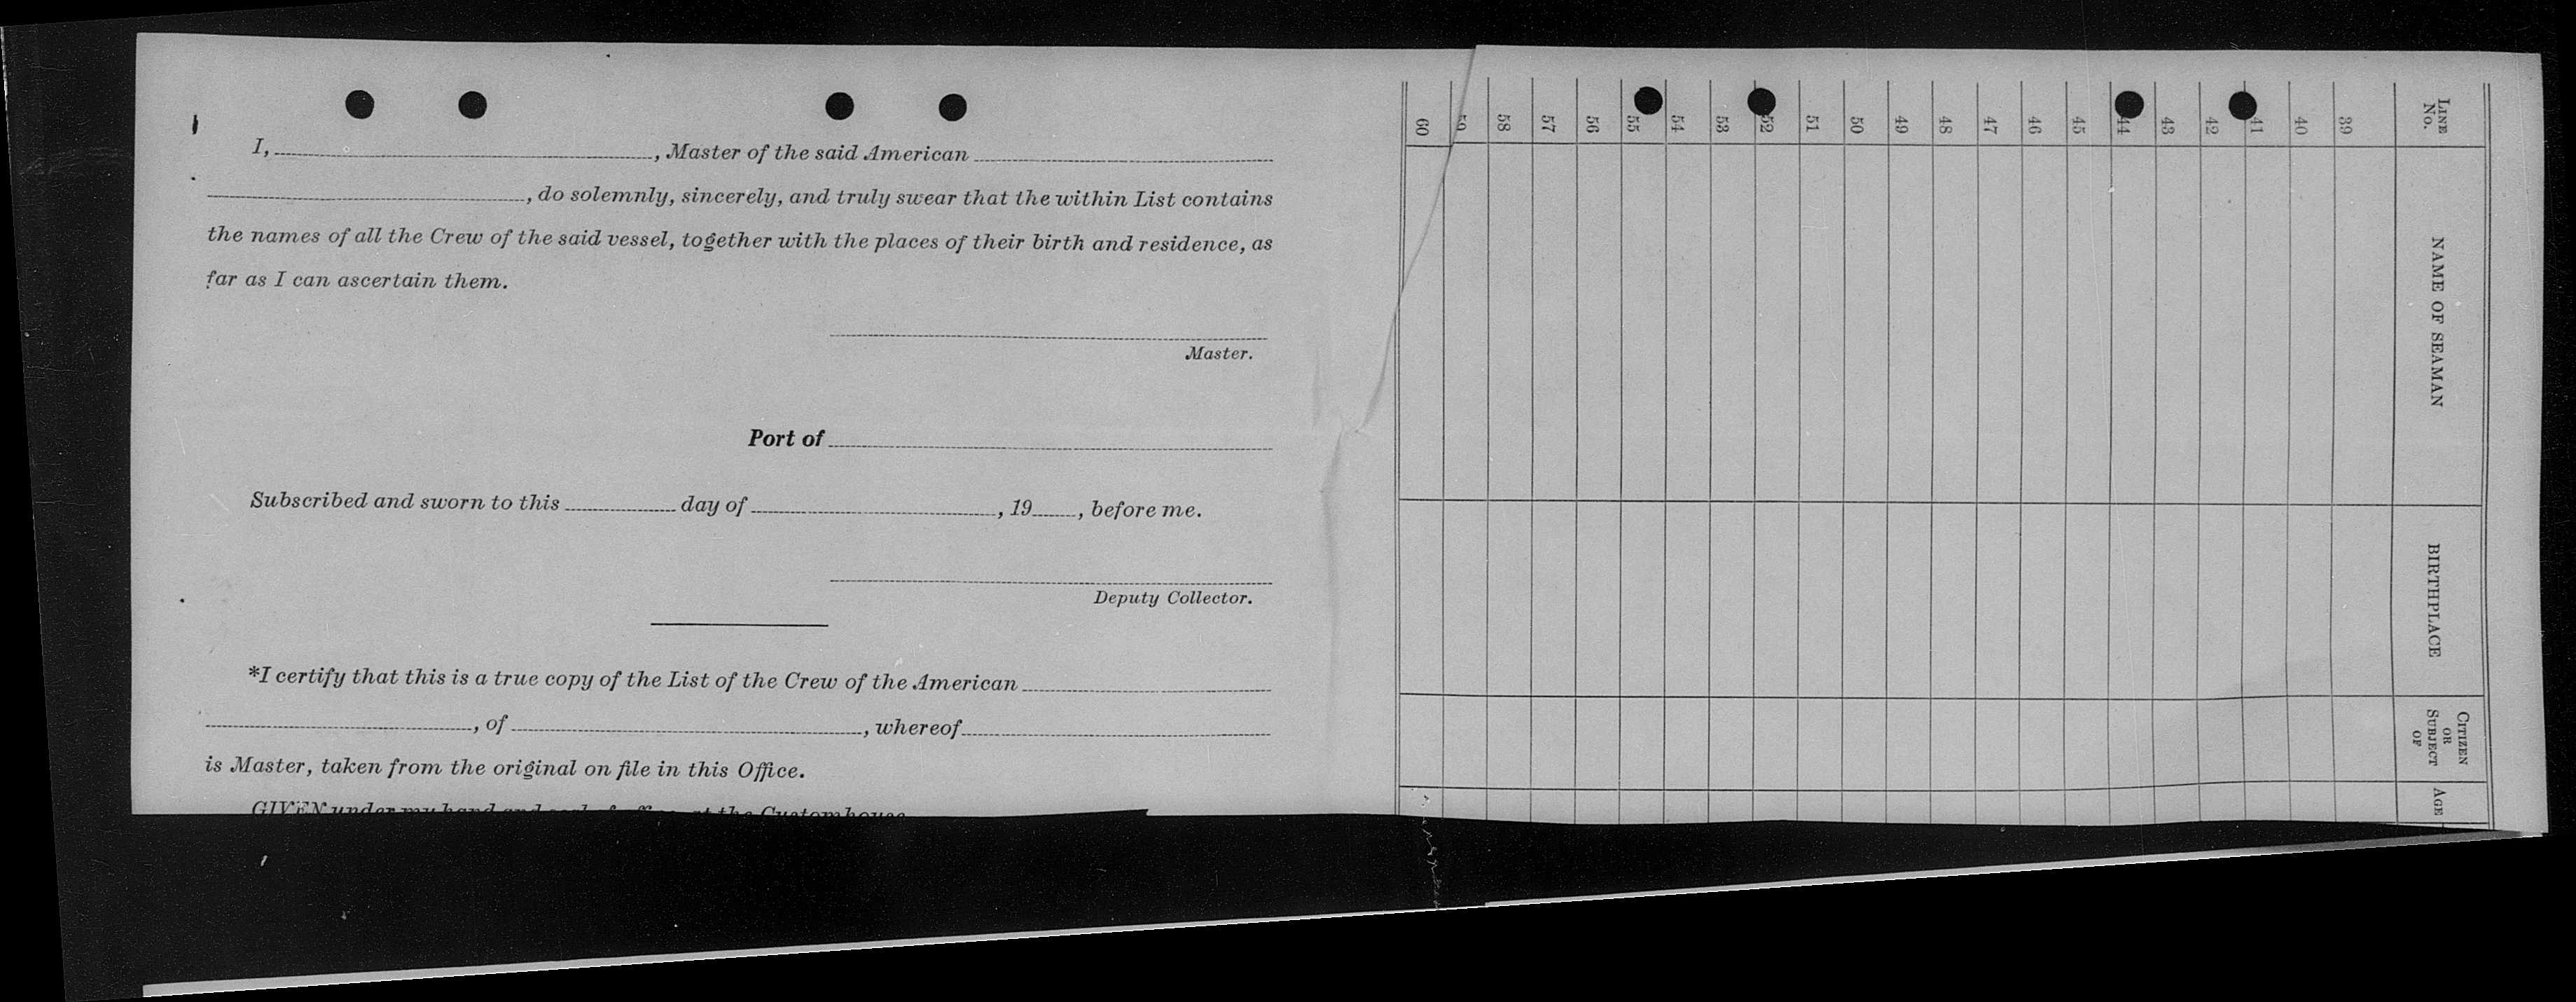 I, , Master of the said American
, do solemnly, sincerely, and truly swear that the within List contains
the names of all the Crew of the said vessel, together with the places of their birth and residence, as
far as I can ascertain them.
Master.
Port of
Subscribed and sworn to this day of , 19 , before me.
Deputy Collector.
*I certify that this is a true copy of the List of the Crew of the American
, of , whereof
is Master, taken from the original on file in this Office.
GIVEN under my hand and seal of office, at the Customhouse
LINE No.
NAME OF SEAMAN
BIRTHPLACE
CITIZEN OR SUBJECT OF
AGE
39
40
41
42
43
44
45
46
47
48
49
50
51
52
53
54
55
56
57
58
59
60